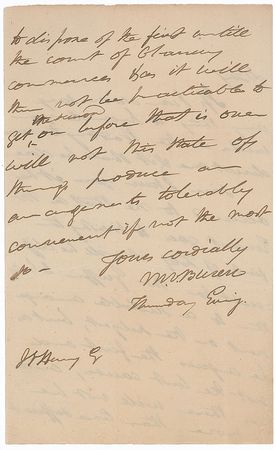 to dispose of the first untill
the court of Chancery
commences & as it will
then not be practicable to
get the minor on before that is over
will not this state of
things produce an
arrangements tolerably
convenient if not the most
so —
Yours cordially
M V Buren
Thursday Eving.
Esq